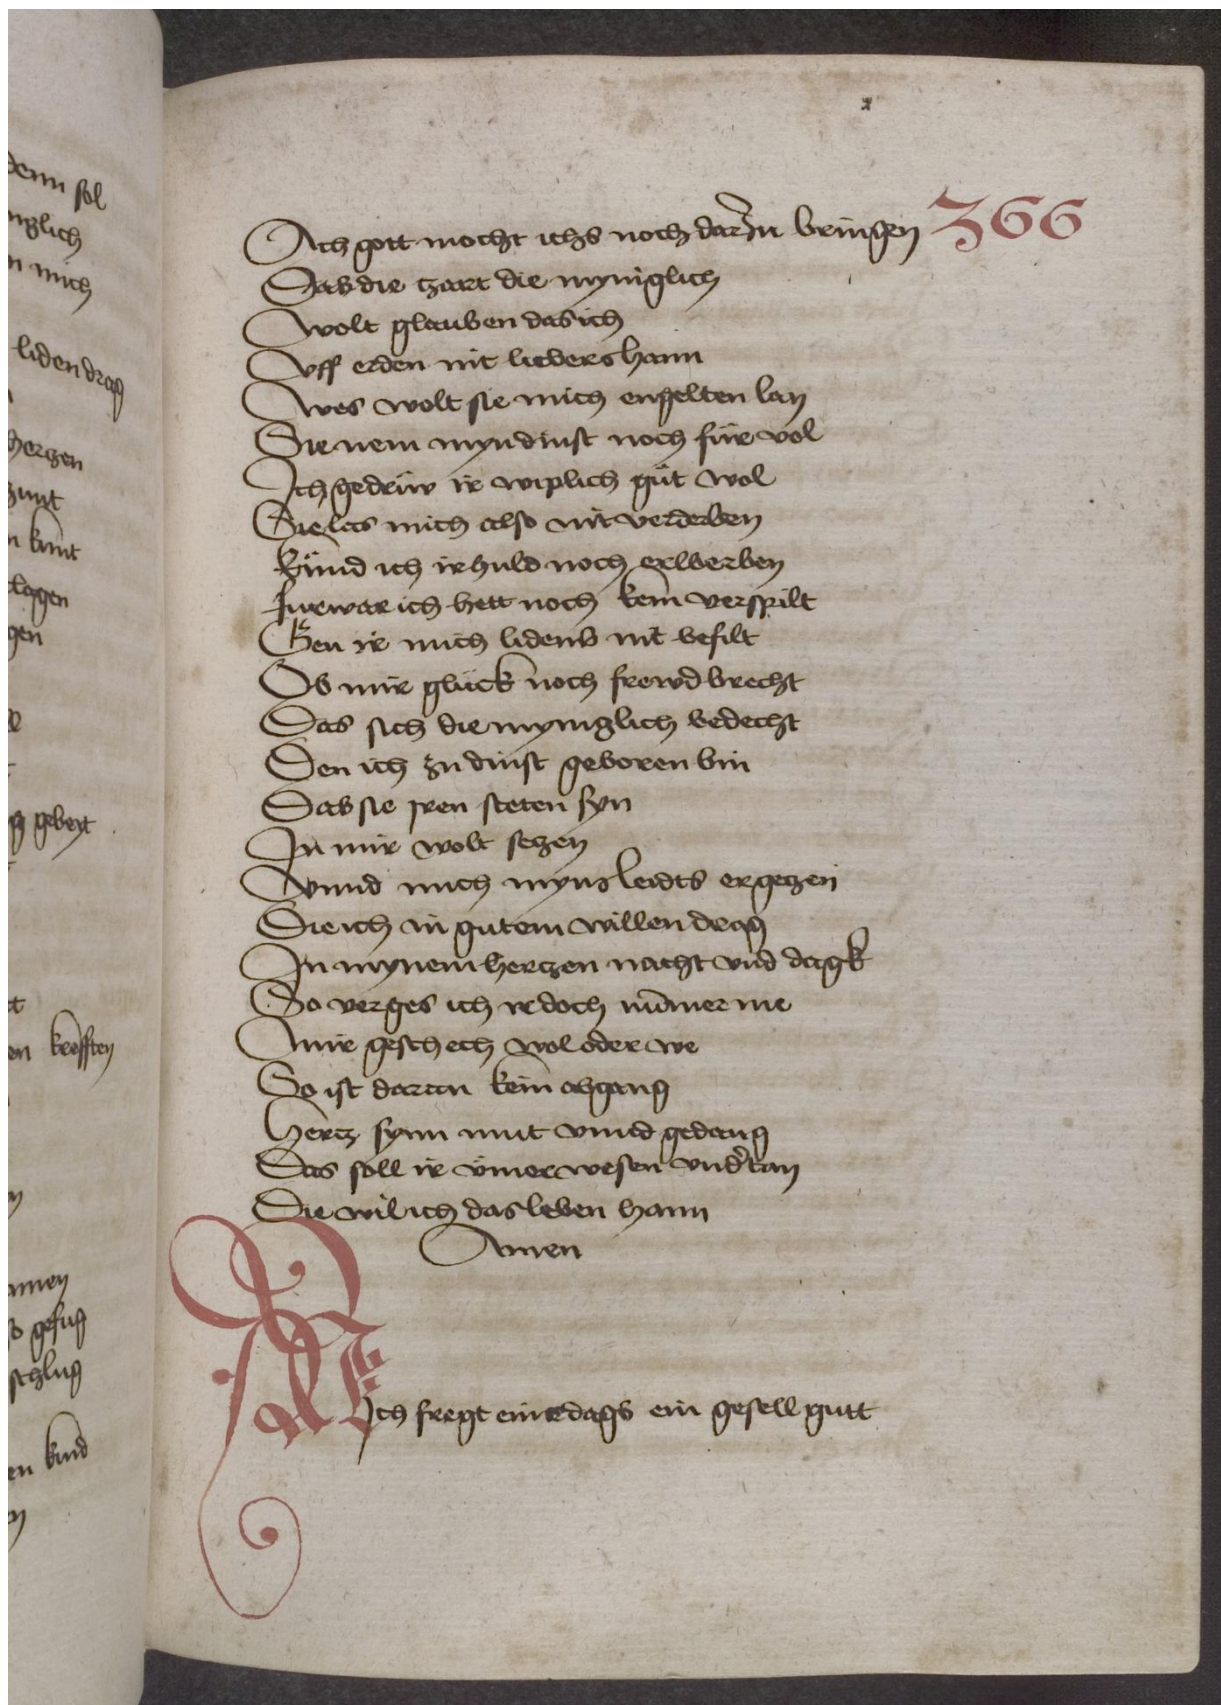 denn sol
nglich
n mich
liden drag
hertzen
kunt
clagen
gen
g gebeyt
en krefften
gefug
schlug
en kind
366
Ach gott mocht ichs noch darzu bringen
Das die tzart die mynniglich
Wolt glauben das ich
Vff erden nit liebers hann
Wes wolt sie mich engelten lan
Sie nem myn dinst noch für vol
Ich gedrüw ir wiplich güt wol
Sie las mich also nit verderben
Künd ich ir huld noch erwerben
Furwar ich hett noch kein verspilt
Gen ir mich lidens nit befilt
Ob mir glück noch frewd brecht
Das sich die mynniglich bedecht
Den ich zu dinst geboren bin
Das sie iren steten syn
In mir wolt setzen
Vnnd mich myns leidts ergetzen
Die ich in gutem willen drag
In mynem hertzen nacht vnd dagk
So verges ich ir doch nūmer me
Mir geschech wol oder we
So ist daran kein abgang
Hertz synn mut vnnd gedang
Das soll ir ÿmer wesen vnd̓tan
Die wil ich das leben hann
Amen
Mich fregt eins dags ein gesell gutt